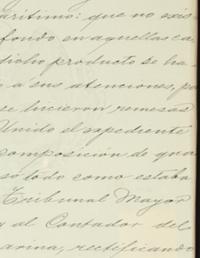 aritimo: que no exis-
fondo en aquellas ca
dicho producto se ha-
a sus atenciones, po
se hicieron remesas
Unido el espediente
composicion de gra
so todo como estaba
Tribunal Mayor
y al Contador del
arina, rectificando